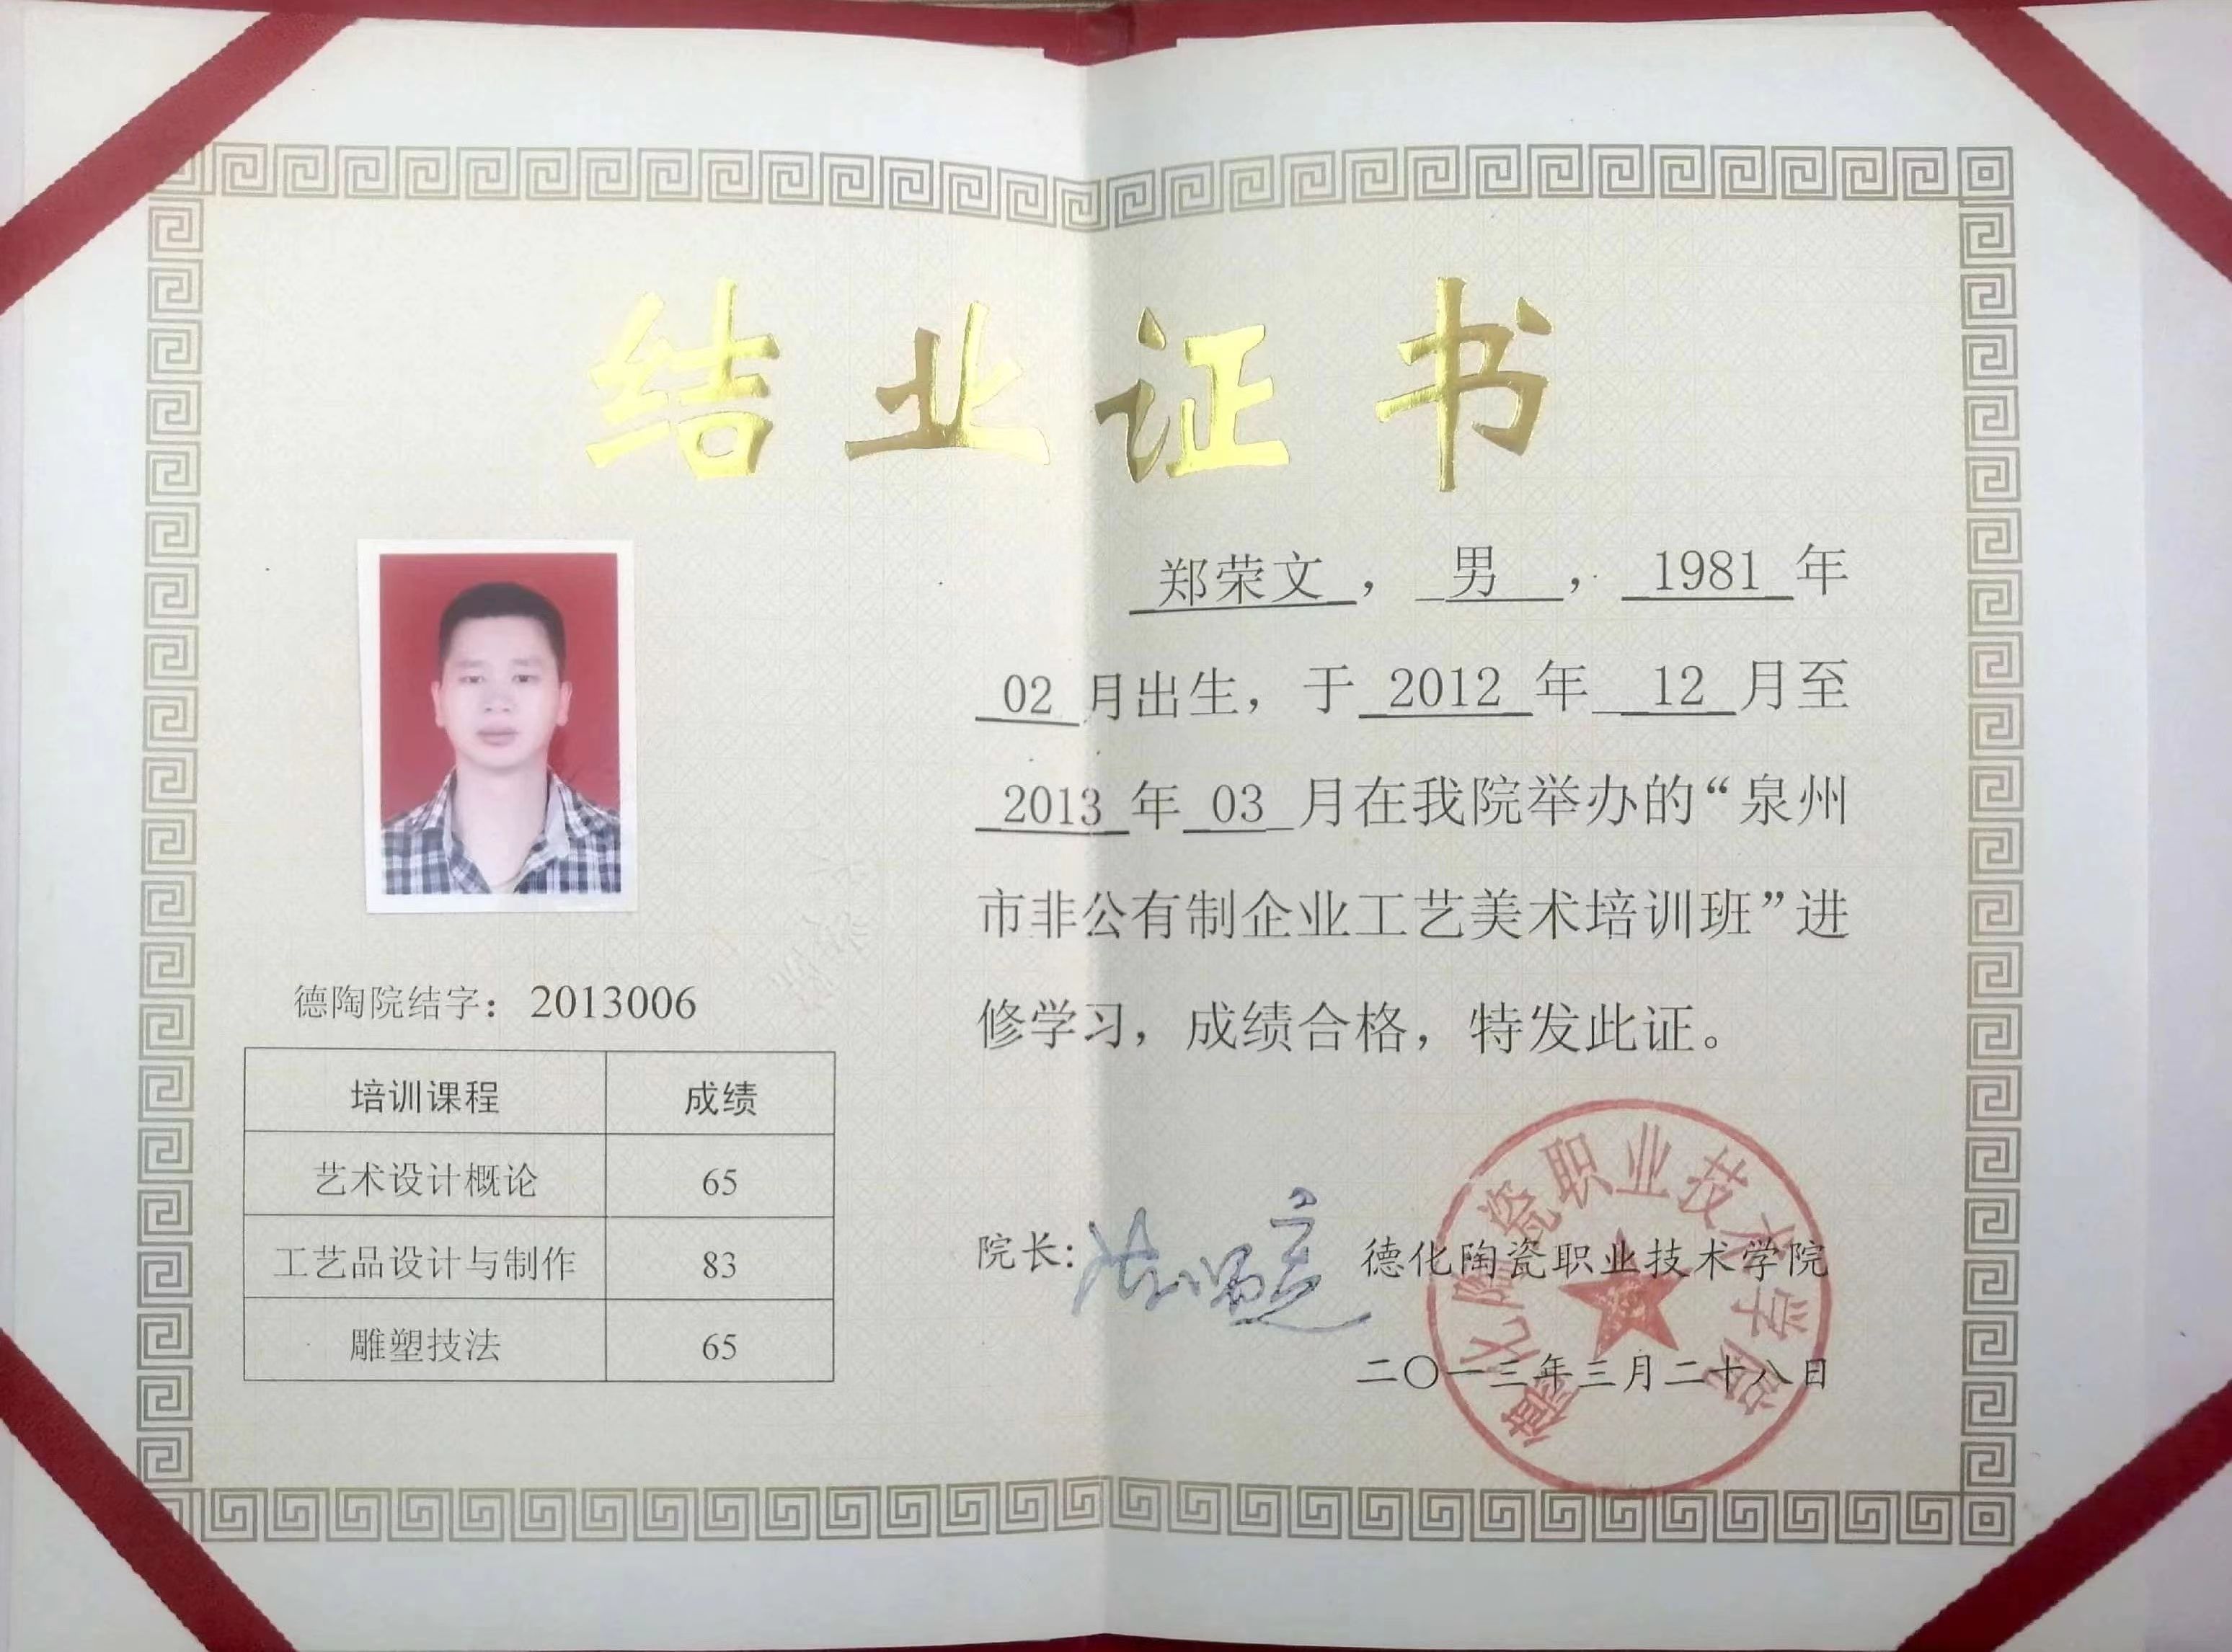 结业证书
郑荣文，男，1981年
02月出生，于2012年12月至
2013年03月在我院举办的“泉州
市非公有制企业工艺美术培训班”进
修学习，成绩合格，特发此证。
德陶院结字：2013006
培训课程 成绩
艺术设计概论 65
工艺品设计与制作 83
雕塑技法 65
院长:
德化陶瓷职业技术学院
二〇一三年三月二十八日
德化陶瓷职业技术学院